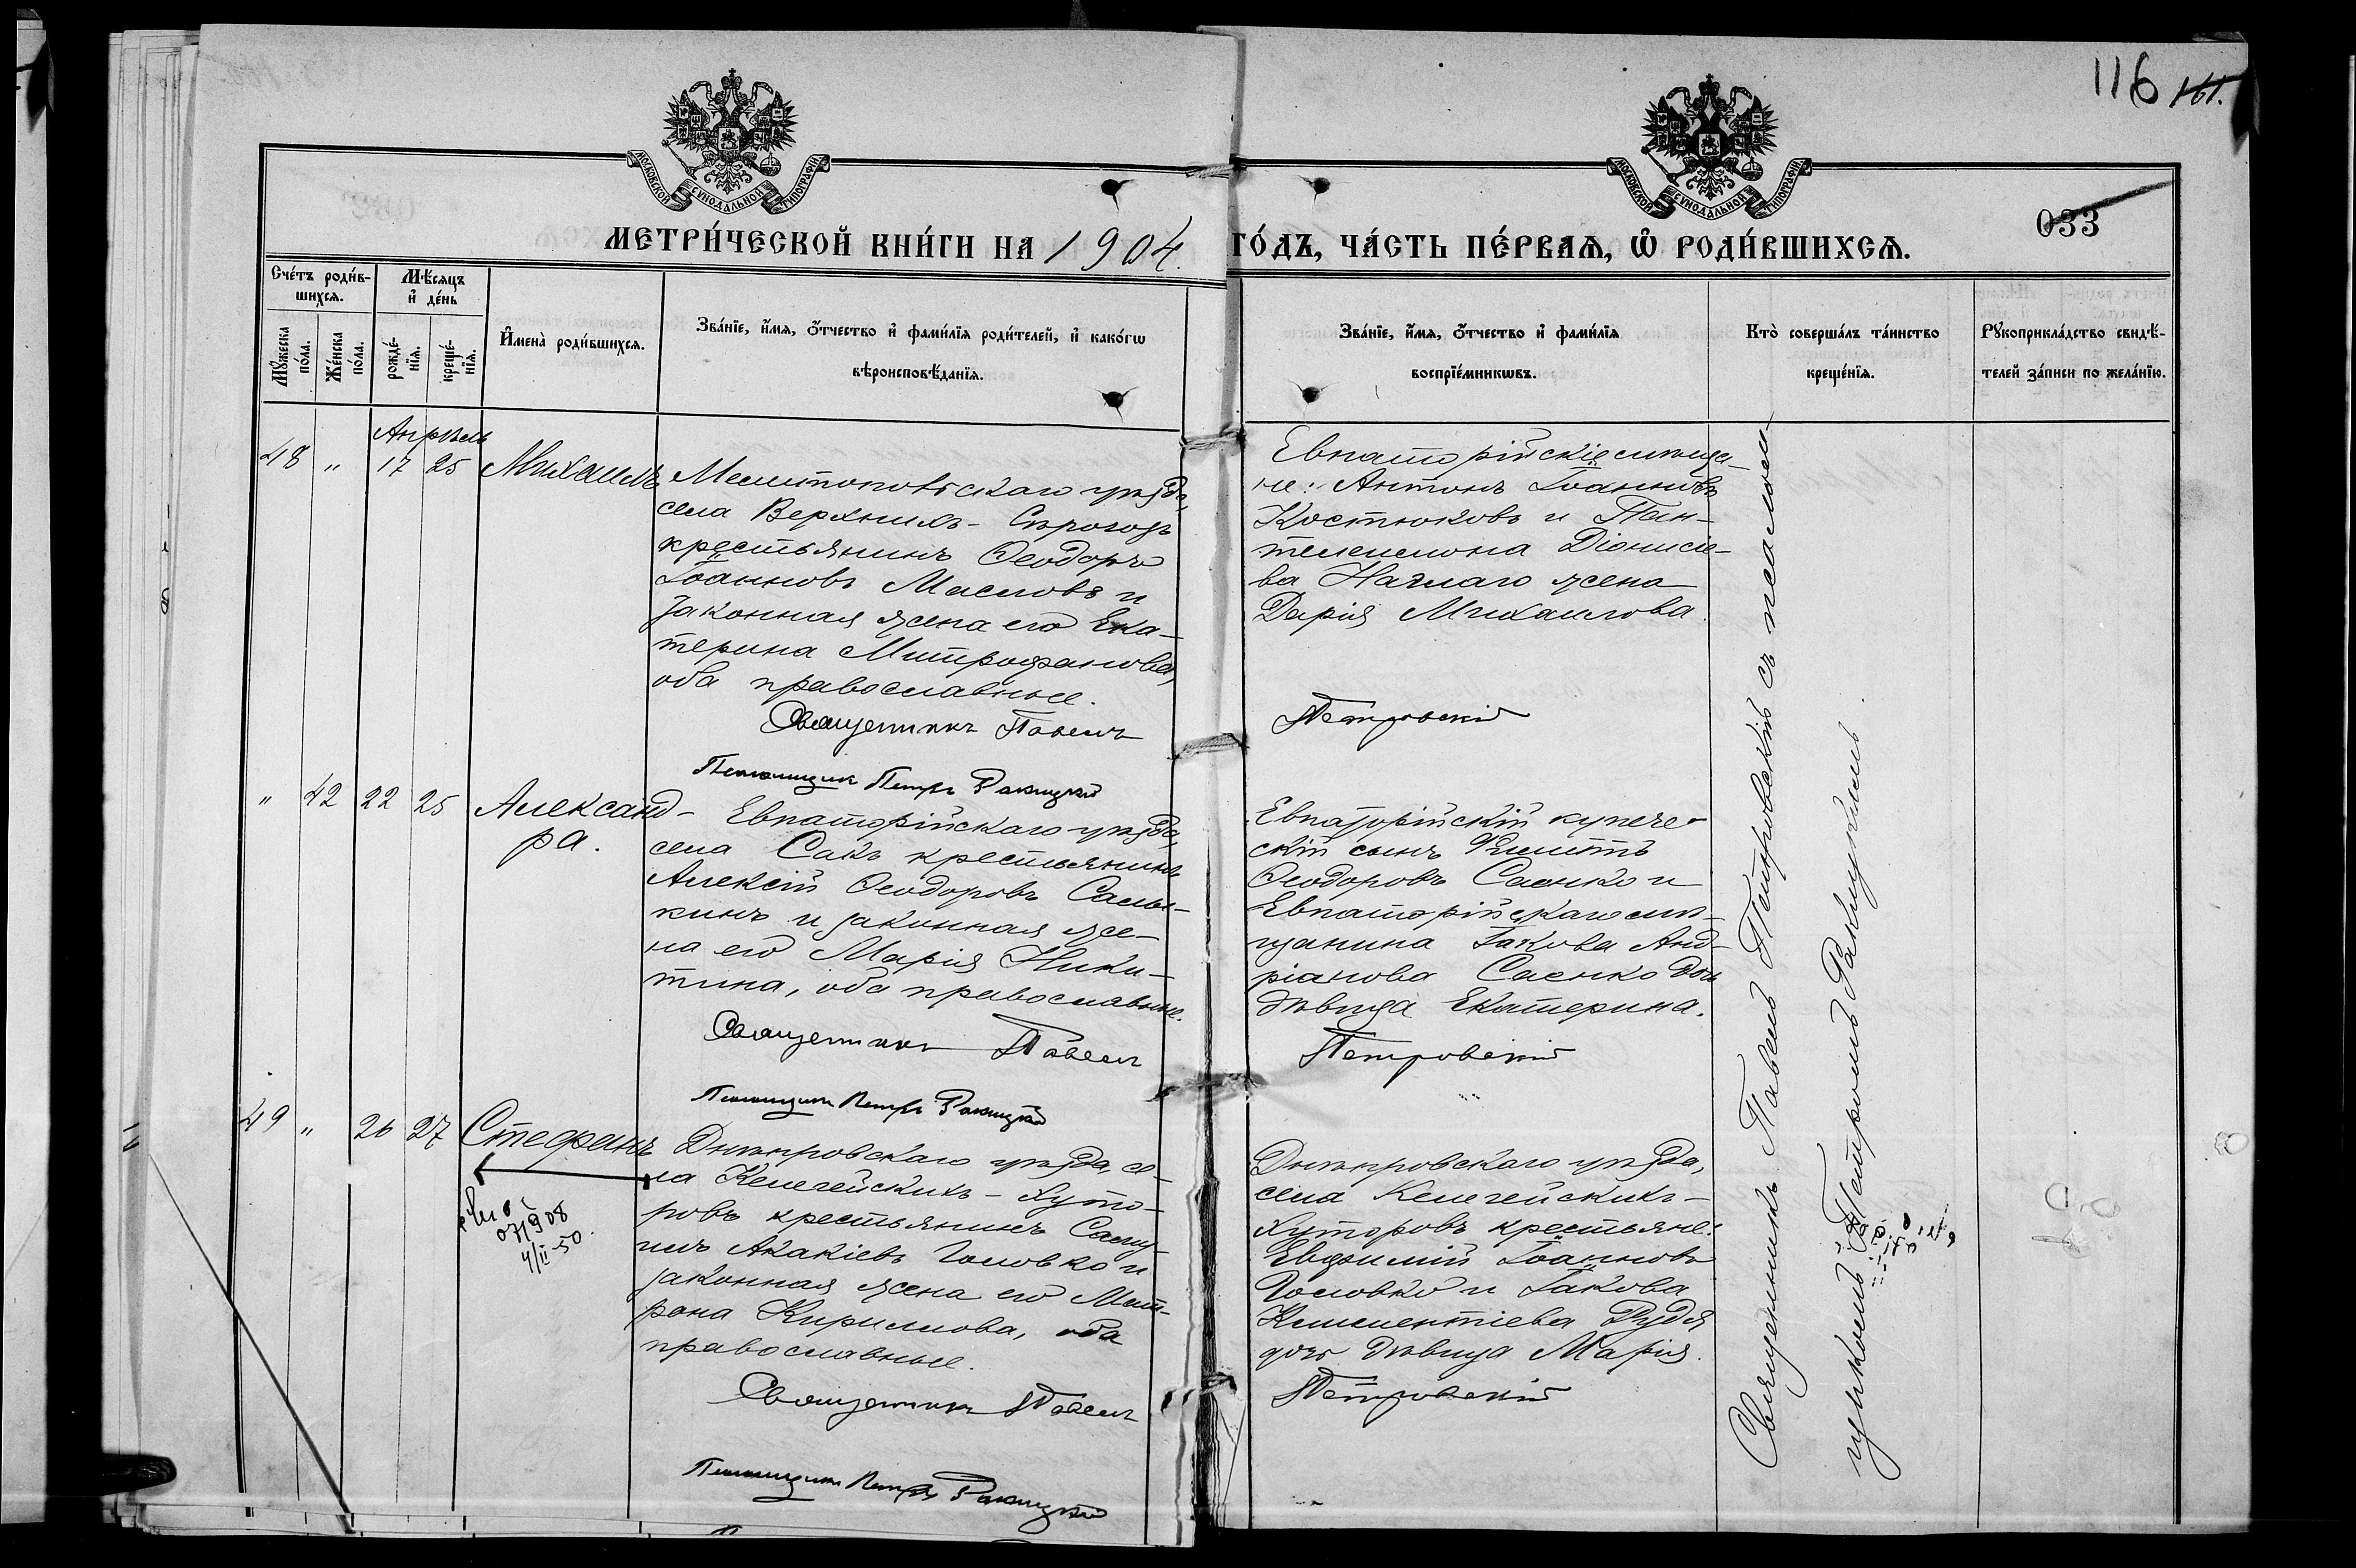 116 161.
МОСКОВСКОЙ СѴНОДАЛЬНОЙ ТИПОГРАФІИ
МОСКОВСКОЙ СѴНОДАЛЬНОЙ ТИПОГРАФІИ
033
МЕТРИ́ЧЕСКОЙ КНИ́ГИ НА 1904.
ГО́ДЪ, ЧА́СТЬ ПЕ́РВАЯ, Ѡ РОДИ́ВШИХСЯ.
Сче́тъ роди́в-
шихся.
Мѣ́сяцъ
и де́нь
Мꙋжеска по́ла.
Же́нска по́ла.
рожде́-
нія.
креще́-
нія.
Имена̀ роди́вшихся.
Зва́ніе, и́мя, ѻ҆́тчество и фами́лія роди́телей, и како́гѡ
вѣроисповѣ́данія.
Зва́ніе, и́мя, ѻ҆́тчество и фами́лія
воспріе́мникѡвъ.
Кто̀ соверша́лъ та́инство
креще́нія.
Рꙋкоприкла́дство свидѣ́-
телей за́писи по жела́нію.
Апрѣль
48 " 17 25 Михаилъ
Мелитопольскаго уѣзда,
села Верхнихъ-Сѣрогозъ
крестьянинъ Ѳеодоръ
Іоанновъ Масловъ и
законная жена его Ека-
терина Митрофанова,
оба православные.
Священникъ Павелъ
Псаломщикъ Петръ Ракицкій
Евпаторійскіе мѣща-
не: Антонъ Іоанновъ
Костюковъ и Пан-
телеимона Діонисіе-
ва Наглаго жена
Дарія Михаилова.
Петровскій
" 42 22 25 Александ-
ра.
Евпаторійскаго уѣзда,
села Сакъ крестьянинъ
Алексій Ѳеодоровъ Самы-
кинъ и законная же-
на его Марія Ники-
тина, оба православные.
Священникъ Павелъ
Псаломщикъ Петръ Ракицкій
Евпаторійскій купече-
скій сынъ
Ѳеодоровъ Саенко и
Евпаторійскаго мѣ-
щанина Іакова Анд-
ріанова Саенко дочь
дѣвица Екатерина.
Петровскій
49 " 26 27 Стефанъ
Днѣпровскаго уѣзда, се-
ла Келегейскихъ-Хуто-
ровъ крестьянинъ Саму-
илъ Акакіевъ Головко и
законная жена его Мат-
рона Кириллова, оба
православные.
Священникъ Павелъ
Псаломщикъ Петръ Ракицкій
4/II-50
Днѣпровскаго уѣзда,
села Келегейскихъ-
Хуторовъ крестьяне:
Евфимій Іоанновъ
Головко и Іакова
Климентіева Рудя
дочь дѣвица Марія.
Петровскій
Священникъ Павелъ Петровскій съ псалом-
щикомъ Петромъ Ракицкимъ.